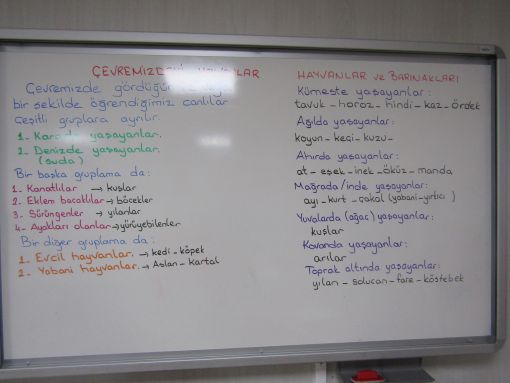 ÇEVREMİZDEKİ HAYVANLAR
Çevremizde gördüğümüz
bir şekilde öğrendiğimiz canlılar
çeşitli gruplara ayrılır.
1- Karada yaşayanlar.
2- Denizde yaşayanlar.
(suda)
Bir başka gruplama da:
1- Kanatlılar → kuşlar
2- Eklem bacaklılar → böcekler
3- Sürüngenler → yılanlar
4- Ayakları olanlar → yürüyebilenler
Bir diğer gruplama da:
1- Evcil hayvanlar. → kedi - köpek
2- Yabani hayvanlar. → Aslan - kartal
HAYVANLAR ve BARINAKLARI
Kümeste yaşayanlar:
tavuk - horoz - hindi - kaz - ördek
Ağılda yaşayanlar:
koyun - keçi - kuzu -
Ahırda yaşayanlar:
at - eşek - inek - öküz - manda
Mağrada/inde yaşayanlar:
ayı - kurt - çakal (yabani-yırtıcı)
Yuvalarda (ağaç) yaşayanlar:
kuşlar
Kovanda yaşayanlar:
arılar
Toprak altında yaşayanlar:
yılan - solucan - fare - köstebek